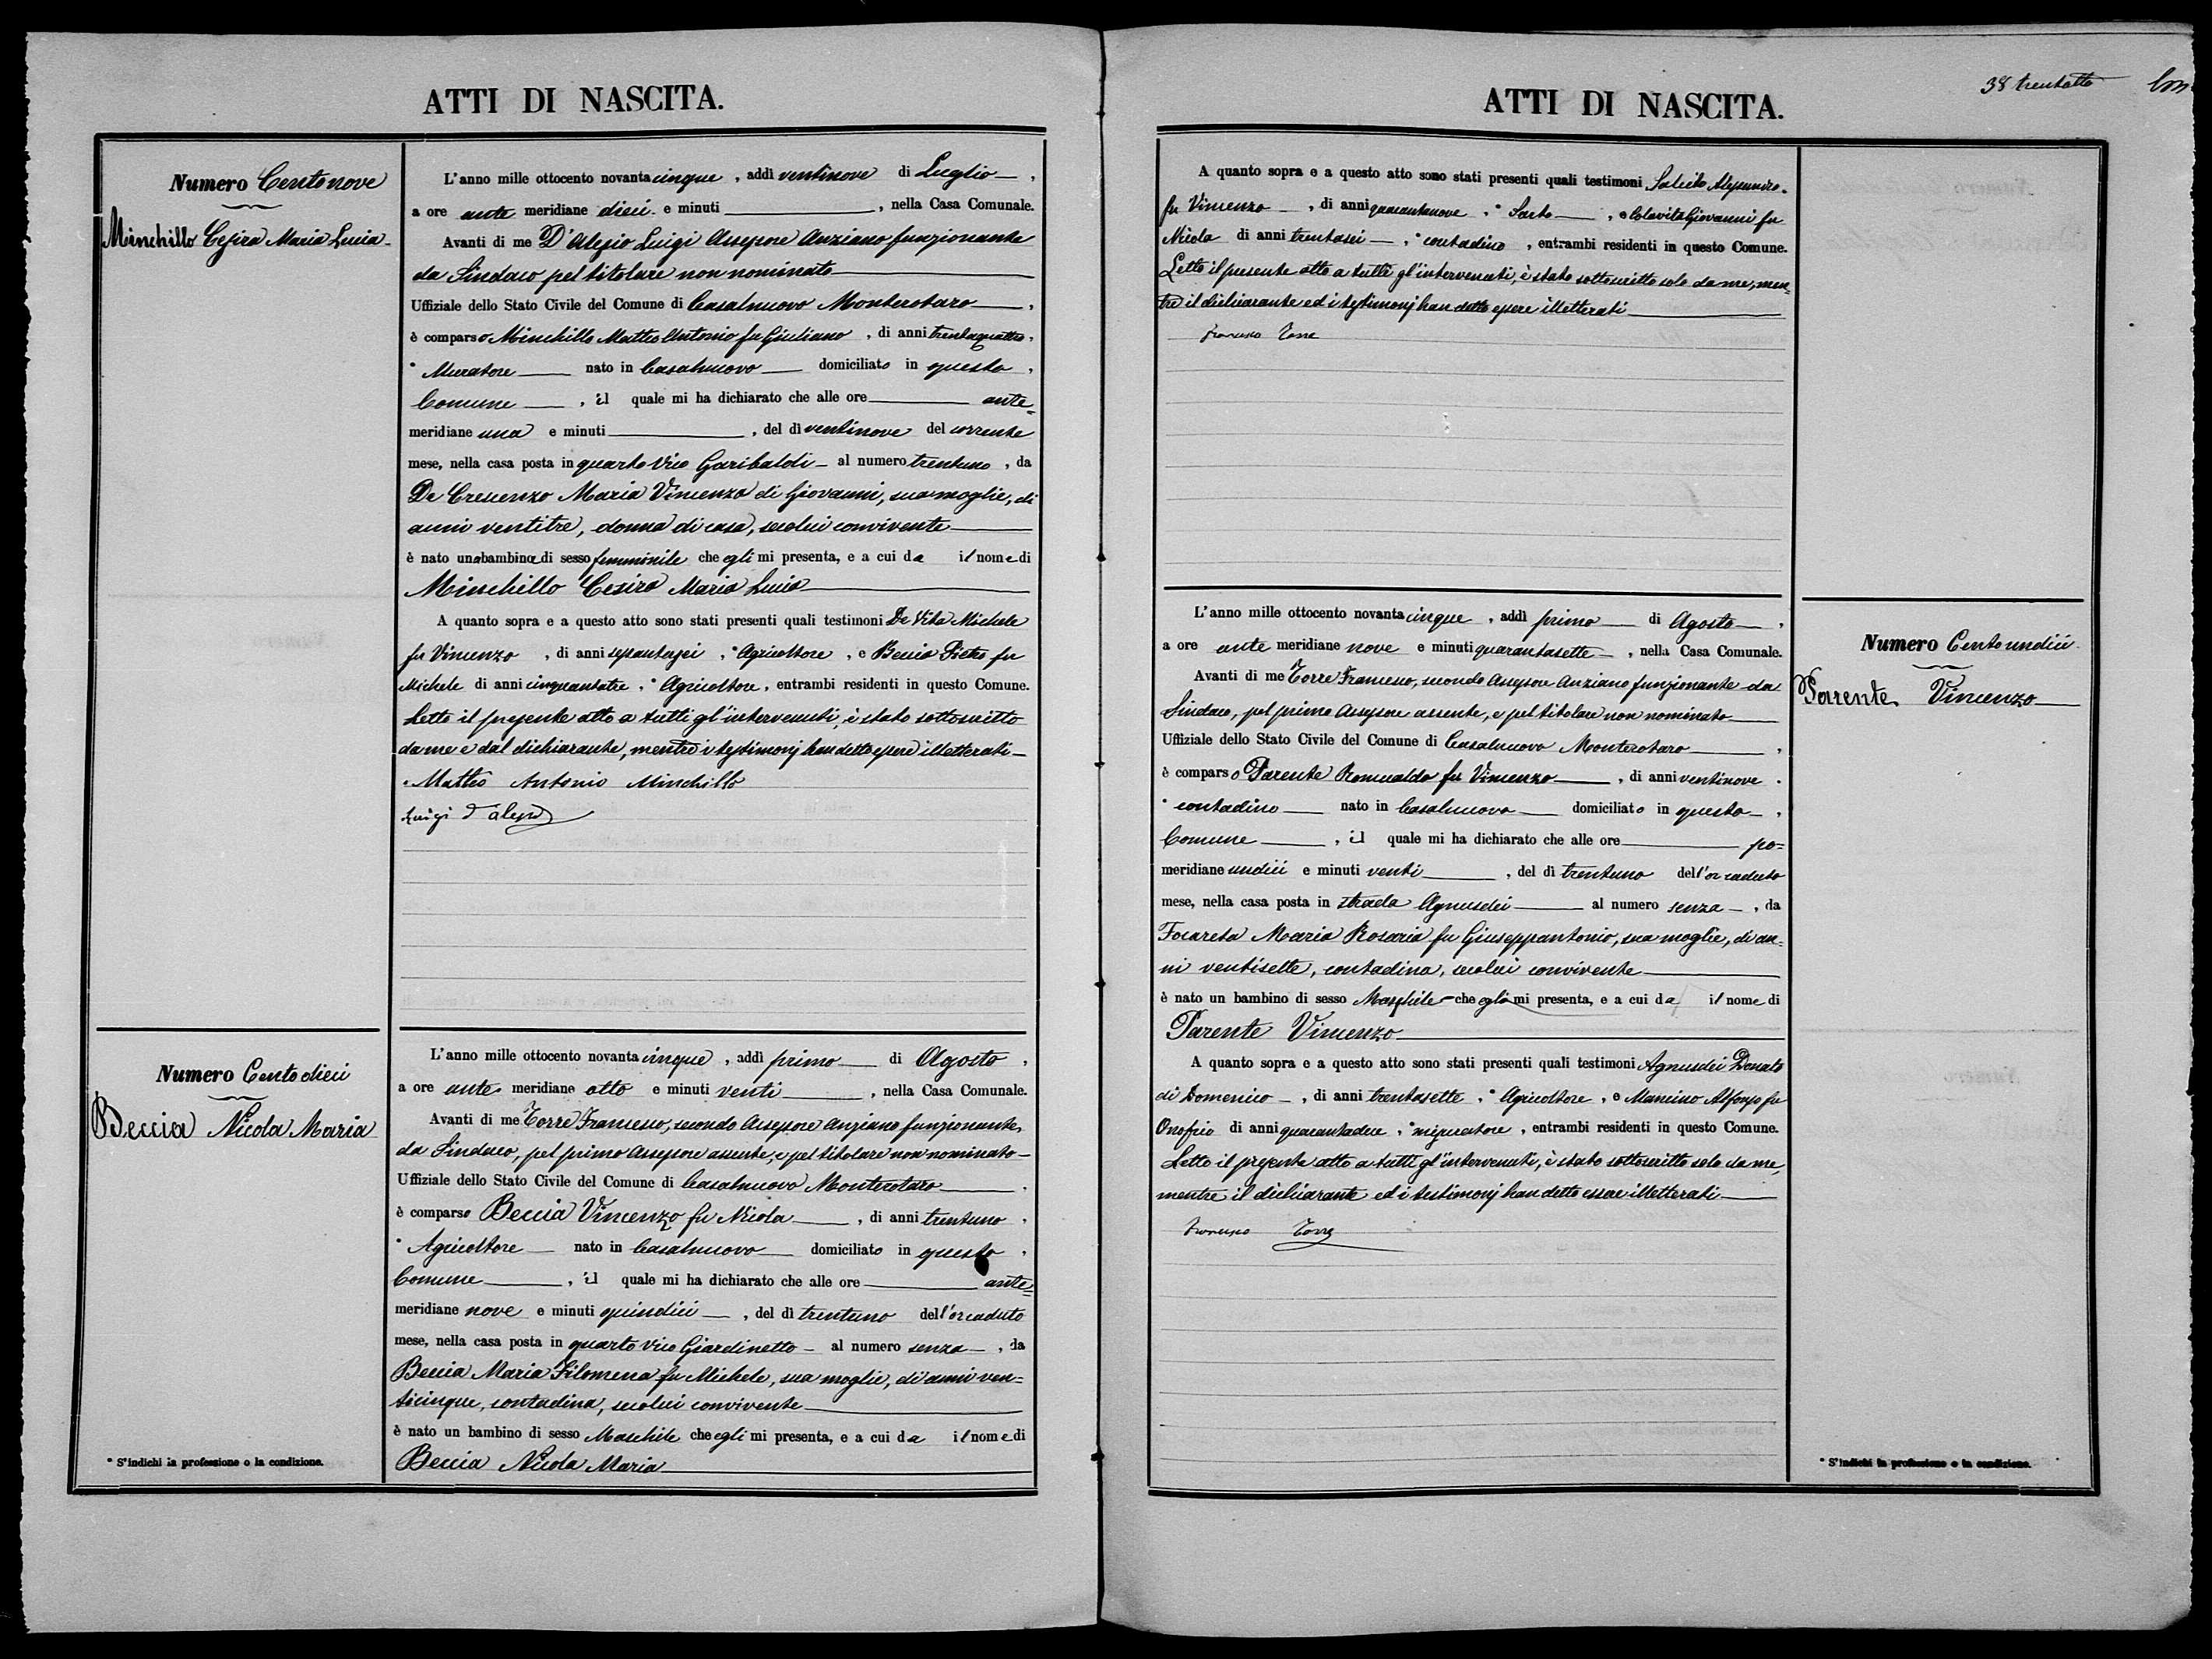 ATTI DI NASCITA.
Numero Centonove
Minchillo Cesira Maria Lucia
L'anno mille ottocento novantacinque, addì ventinove di Luglio,
a ore ante meridiane dieci e minuti, nella Casa Comunale.
Avanti di me D'Alesio Luigi Assessore Anziano funzionante
da Sindaco pel titolare non nominato
Uffiziale dello Stato Civile del Comune di Casalnuovo Monterotaro,
è comparso Minchillo Matteo Antonio fu Giuliano, di anni trentaquattro,
* Muratore nato in Casalnuovo domiciliato in questo,
Comune, il quale mi ha dichiarato che alle ore ante=
meridiane una e minuti, del dì ventinove del corrente
mese, nella casa posta in quarto vico Garibaldi al numero trentuno, da
De Crescenzo Maria Vincenza di Giovanni, sua moglie, di
anni ventitre, donna di casa, secolui convivente
è nato una bambina di sesso femminile che egli mi presenta, e a cui da il nome di
Minchillo Cesira Maria Lucia
A quanto sopra e a questo atto sono stati presenti quali testimoni De Vita Michele
fu Vincenzo, di anni sessantasei, * Agricoltore, e Beccia Pietro fu
Michele di anni cinquantatre, * Agricoltore, entrambi residenti in questo Comune.
Letto il presente atto a tutti gl'intervenuti, è stato sottoscritto
da me e dal dichiarante, mentre i testimonj han detto essere illetterati
Matteo Antonio Minchillo
Luigi D'alesio
Numero Centodieci
Beccia Nicola Maria
L'anno mille ottocento novantacinque, addì primo di Agosto,
a ore ante meridiane otto e minuti venti, nella Casa Comunale.
Avanti di me Torre Francesco, secondo Assessore Anziano funzionante
da Sindaco, pel primo Assessore assente, e pel titolare non nominato
Uffiziale dello Stato Civile del Comune di Casalnuovo Monterotaro,
è comparso Beccia Vincenzo fu Nicola, di anni trentuno,
* Agricoltore nato in Casalnuovo domiciliato in questo,
Comune, il quale mi ha dichiarato che alle ore ante=
meridiane nove e minuti quindici, del dì trentuno dell'or caduto
mese, nella casa posta in quarto vico Giardinetto al numero senza, da
Beccia Maria Filomena fu Michele, sua moglie, di anni ven=
ticinque, contadina, secolui convivente
è nato un bambino di sesso Maschile che egli mi presenta, e a cui da il nome di
Beccia Nicola Maria
* S'indichi la professione o la condizione.
ATTI DI NASCITA.
38 trentotto
A quanto sopra e a questo atto sono stati presenti quali testimoni Salcito Alessandro
fu Vincenzo, di anni quarantanove, * Sarto, e Colavita Giovanni fu
Nicola di anni trentasei, * contadino, entrambi residenti in questo Comune.
Letto il presente atto a tutti gl'intervenuti, è stato sottoscritto solo da me, men=
tre il dichiarante ed i testimonj han detto essere illetterati
Francesco Torre
L'anno mille ottocento novantacinque, addì primo di Agosto,
a ore ante meridiane nove e minuti quarantasette, nella Casa Comunale.
Avanti di me Torre Francesco, secondo Assessore Anziano funzionante da
Sindaco, pel primo Assessore assente, e pel titolare non nominato
Uffiziale dello Stato Civile del Comune di Casalnuovo Monterotaro,
è comparso Parente Romualdo fu Vincenzo, di anni ventinove,
* contadino nato in Casalnuovo domiciliato in questo,
Comune, il quale mi ha dichiarato che alle ore po=
meridiane undici e minuti venti, del dì trentuno dell'or caduto
mese, nella casa posta in strada Agnusdei al numero senza, da
Focareta Maria Rosaria fu Giuseppantonio, sua moglie, di an=
ni ventisette, contadina, secolui convivente
è nato un bambino di sesso Maschile che egli mi presenta, e a cui da il nome di
Parente Vincenzo
A quanto sopra e a questo atto sono stati presenti quali testimoni Agnusdei Donato
di Domenico, di anni trentasette, * Agricoltore, e Mancino Alfonso fu
Onofrio di anni quarantadue, * misuratore, entrambi residenti in questo Comune.
Letto il presente atto a tutti gl'intervenuti, è stato sottoscritto solo da me,
mentre il dichiarante ed i testimonj han detto essere illetterati
Francesco Torre
Numero Centoundici
Parente Vincenzo
* S'indichi la professione o la condizione.